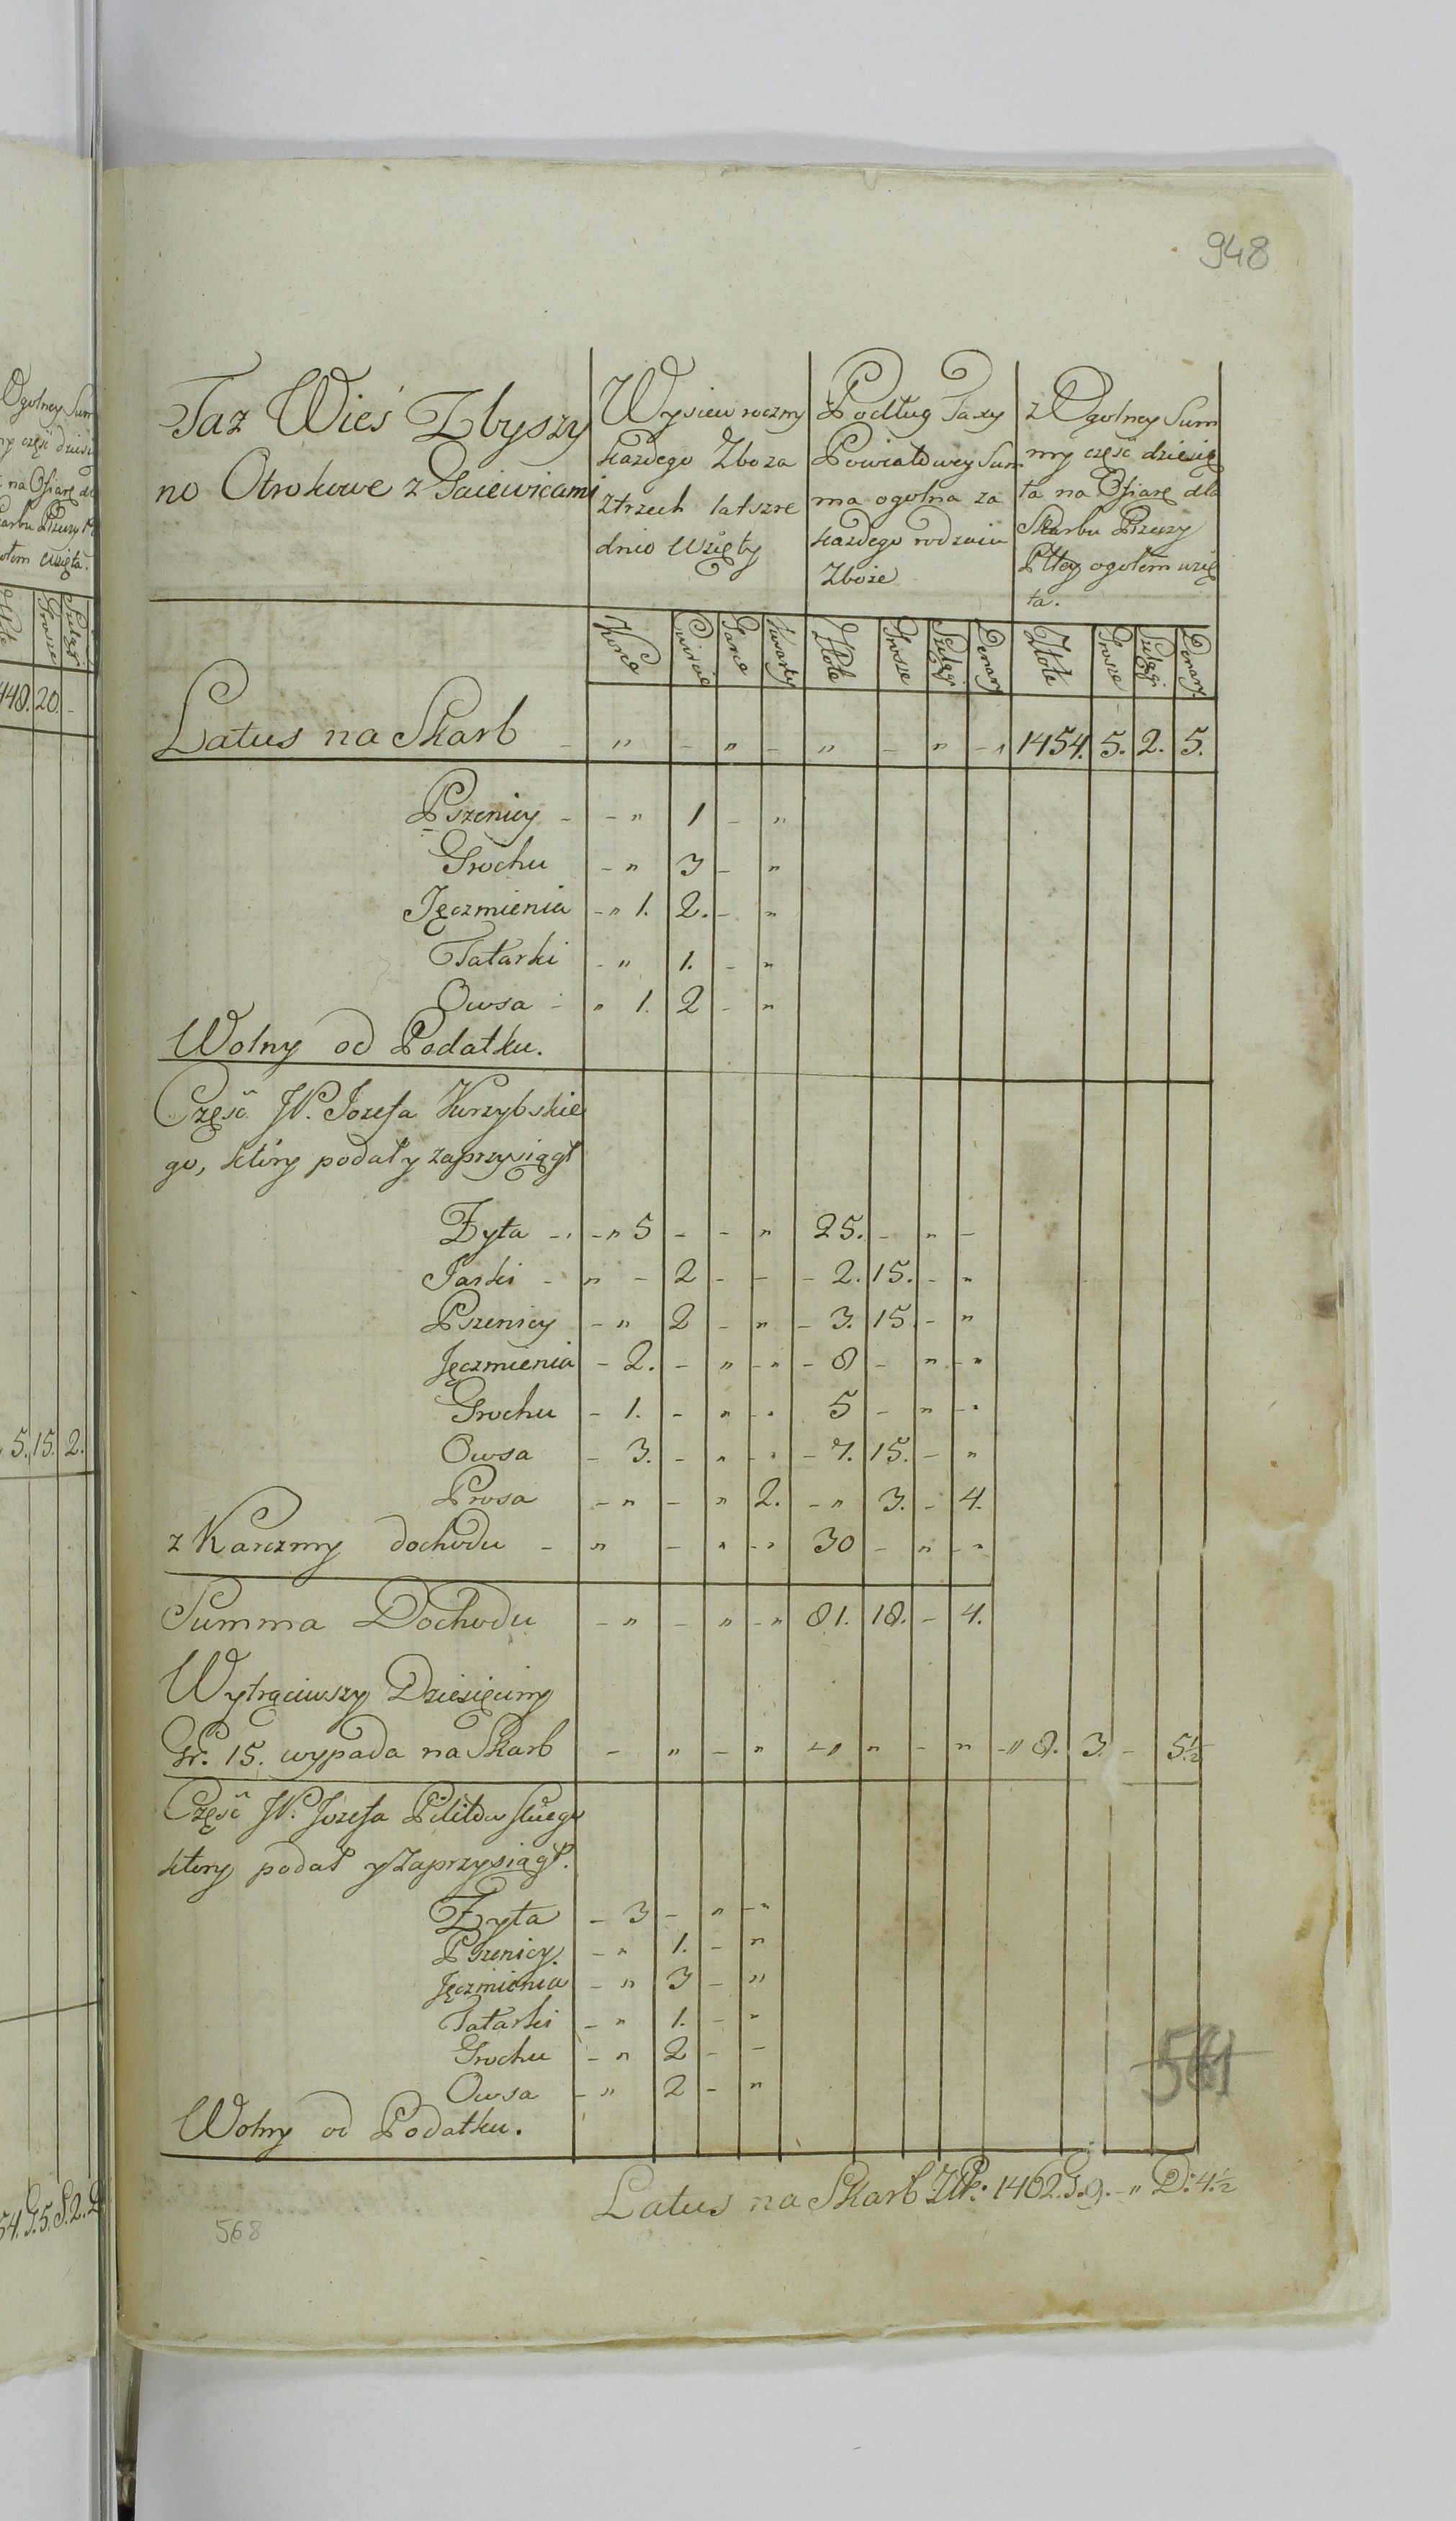 948
Taz Wieś Zbyszy
no Otrokowe z Gaiewicami
Wysiew roczny
każdego Zboza
z trzech lat szre
dnio wzięty
Podług Taxy
Powiatowey Sum
ma ogolna za
każdego rodzaiu
Zboże
z Ogolney Sum
my część dziesię
ta na Ofiarę dla
Skarbu Rzeczy
Pltey ogołem wzię
ta.
Korce Cwierci Garce Kwarty Złote Grosze Szelągi Denary Złote Grosze Szelągi Denary
Latus na Skarb - " - " - " - " - " 1454. 5. 2. 5.
Pszenicy - - " 1 - "
Grochu - " 3 - "
Jęczmienia - " 1. 2. - "
Tatarki - " 1. - "
Owsa - " 1. 2 - "
Wolny od Podatku.
Część JP. Jozefa Kurzybskie
go, ktory podał y zaprzysiągł
Żyta - - " 5 - - " 25. - " -
Jarki - " - 2 - - - 2. 15. - "
Pszenicy - " 2 - " - 3. 15 - "
Jęczmienia - 2. - " - " - 8 - " - "
Grochu - 1. - " - " 5 - " - "
Owsa - 3. - " - " - 7. 15. - "
Prosa - " - " 2. - " 3. - 4.
z Karczmy dochodu - " - " - " 30 - " - "
Summa Dochodu - " - " - " 81. 18. - 4.
Wytrąciwszy Dziesięciny
Gr. 15. wypada na Skarb - " - " - " " - " - " 8. 3. - 5½
Część JP. Jozefa
ktory podał y Zaprzysiągł.
Żyta - 3 - " - "
Pszenicy. - " 1. - "
Jęczmienia - " 3 - "
Tatarki - " 1. - "
Grochu - " 2 - -
Owsa - " 2 - "
Wolny od Podatku.
Latus na Skarb ZłP: 1462. G. 9. - " D: 4½
568